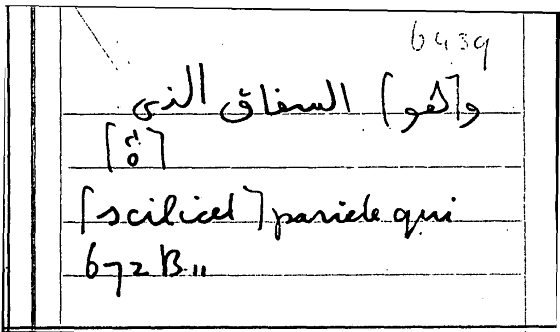 6439
و[هو] السفاق الذى
[ὅ]
[scilicet] pariete qui
672 B 11